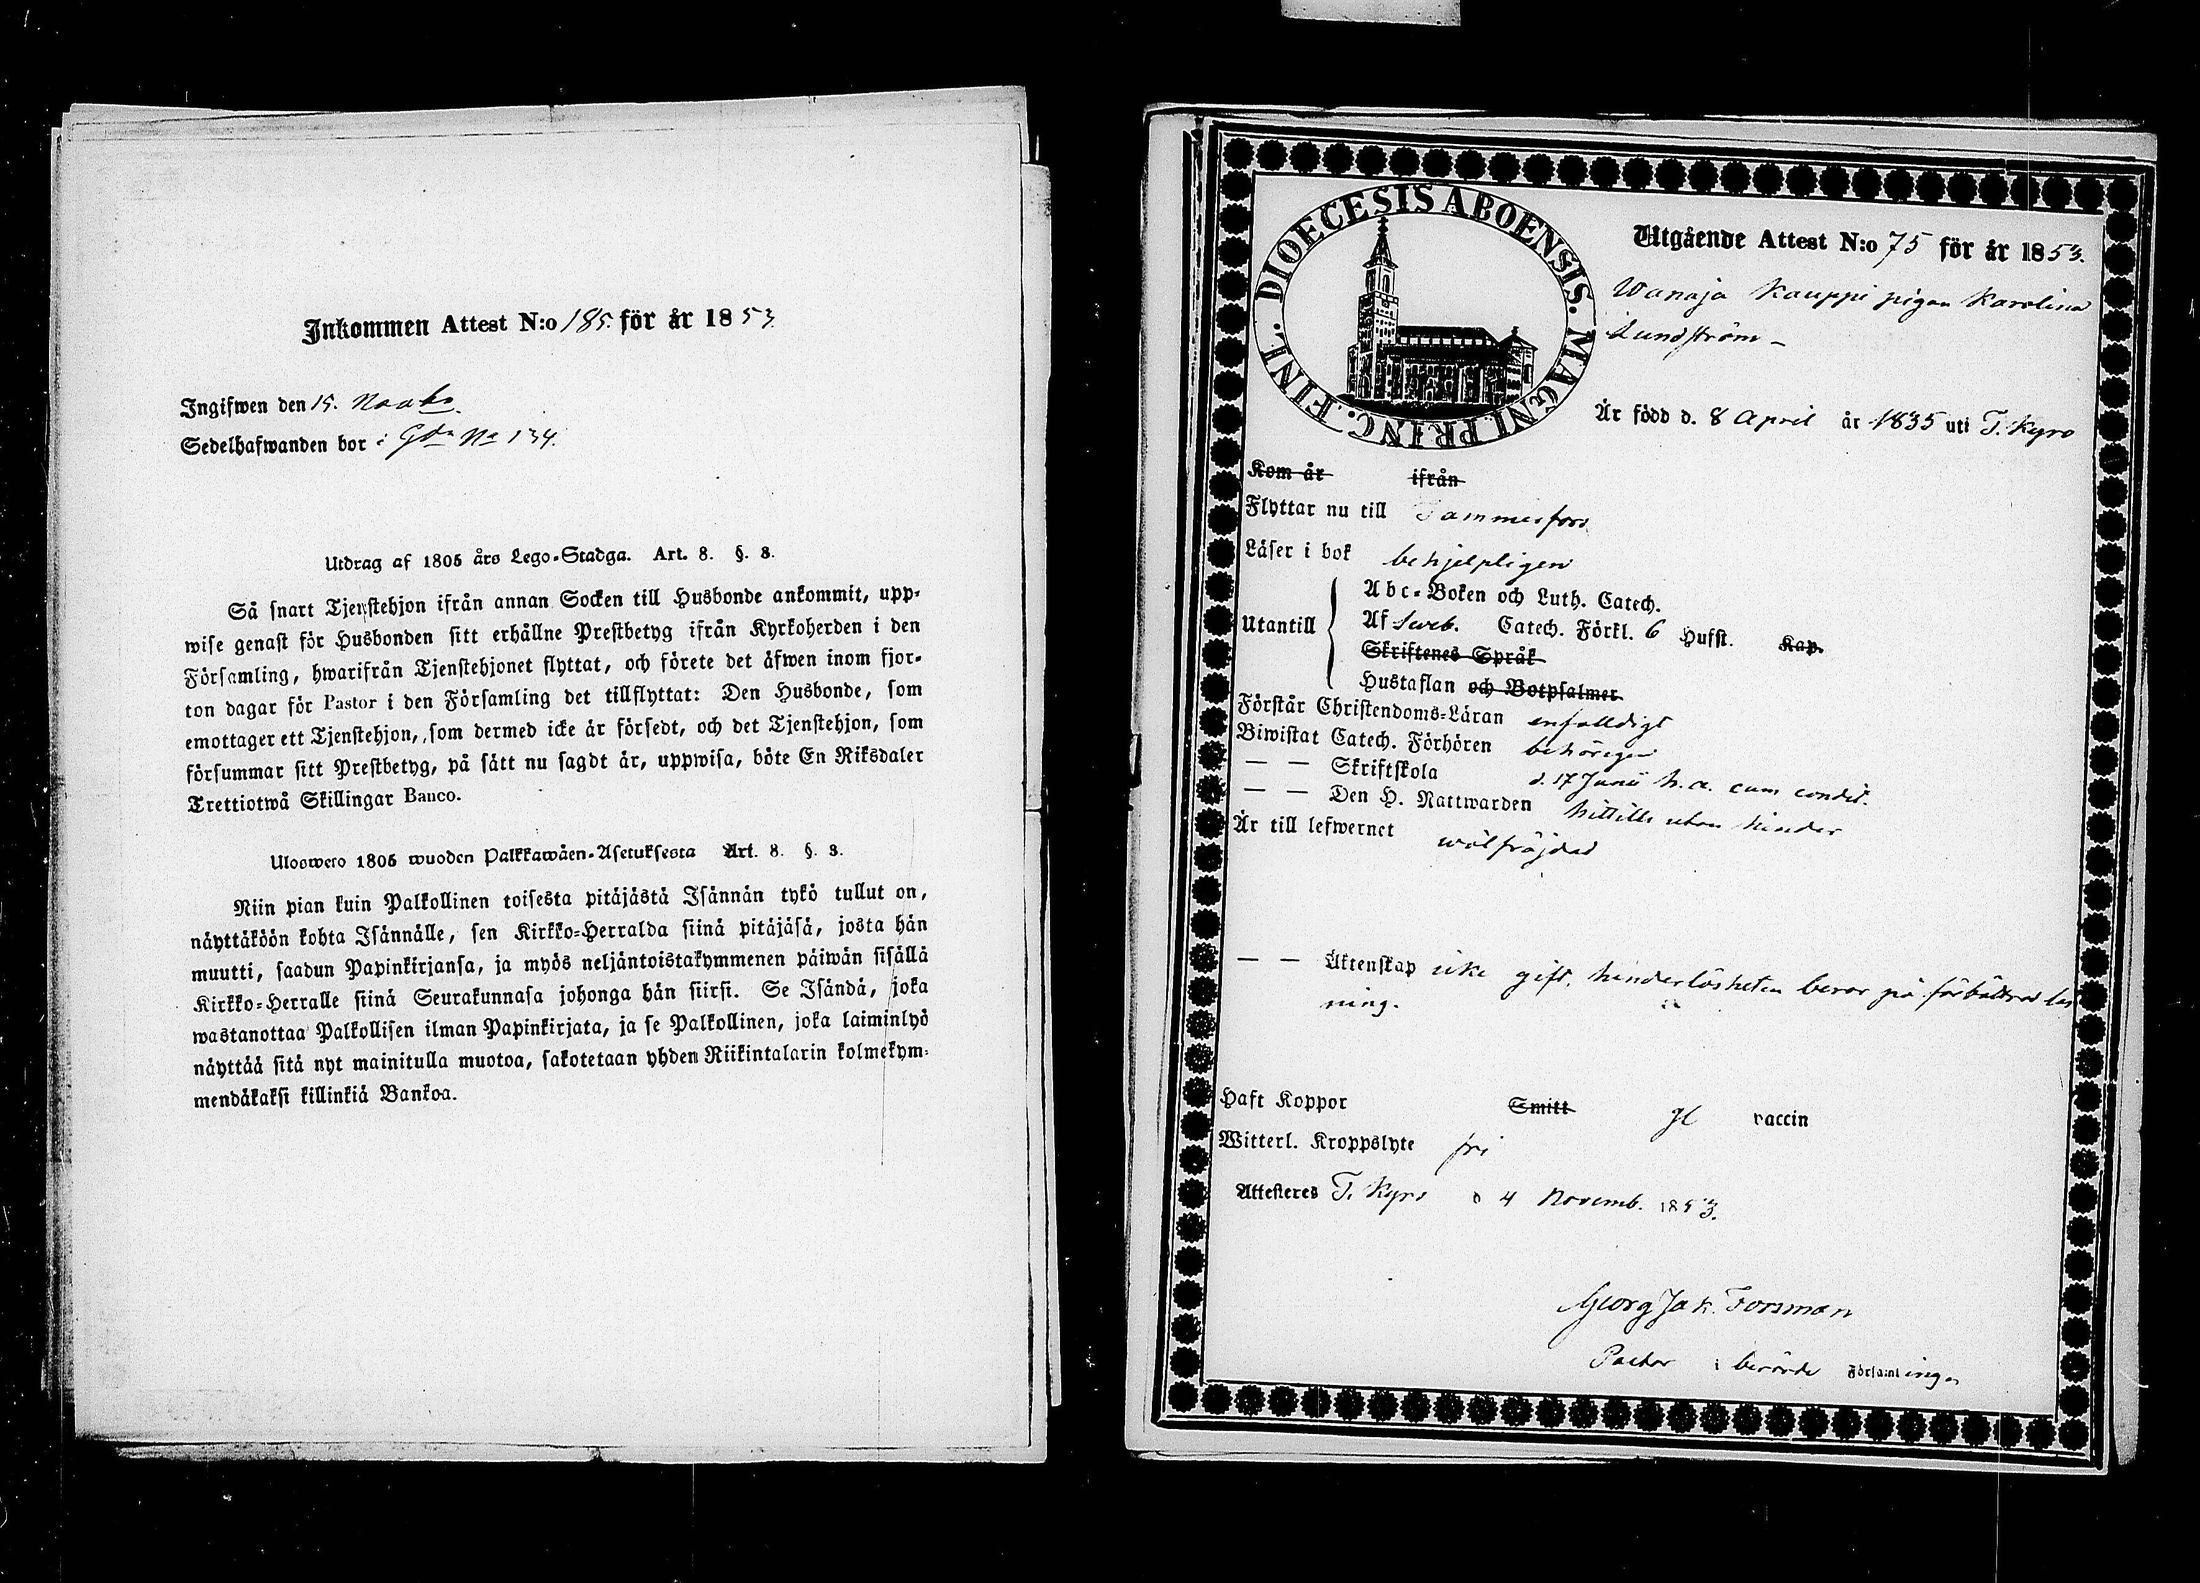 Inkommen Attest N:o 185. för år 1853
Ingifwen den 15. Novbr.
Sedelhafwanden bor i Gdn No 134.
Utdrag af 1805 års Lego-Stadga. Art. 8. §. 8.
Så snart Tjenstehjon ifrån annan Socken till Husbonde ankommit, upp-
wise genast för Husbonden sitt erhållne Prestbetyg ifrån Kyrkoherden i den
Församling, hwarifrån Tjenstehjonet flyttat, och förete det äfwen inom fjor-
ton dagar för Pastor i den Församling det tillflyttat: Den Husbonde, som
emottager ett Tjenstehjon, som dermed icke är försedt, och det Tjenstehjon, som
försummar sitt Prestbetyg, på sätt nu sagdt är, uppwisa, böte En Riksdaler
Trettiotwå Skillingar Banco.
Uloswero 1805 wuoden Palkkawäen-Asetuksesta Art. 8. §. 8.
Niin pian kuin Palkollinen toisesta pitäjästä Isännän tykö tullut on,
näyttäköön kohta Isännälle, sen Kirkko-Herralda siinä pitäjäsä, josta hän
muutti, saadun Papinkirjansa, ja myös neljäntoistakymmenen päiwän sisällä
Kirkko-Herralle siinä Seurakunnasa johonga hän siirsi. Se Isändä, joka
wastanottaa Palkollisen ilman Papinkirjata, ja se Palkollinen, joka laiminlyö
näyttää sitä nyt mainitulla muotoa, sakotetaan yhden Riikintalarin kolmekym-
mendäkaksi killinkiä Bankoa.
DIOECESIS ABOENSIS. MAGNI PRINC. FINL.
Utgående Attest N:o 75 för år 1853.
Wanaja Kauppi pigan Karolina
Lundström
Är född d. 8 April år 1835 uti T. Kyro
Kom år ifrån
Flyttar nu till Tammerfors
Läser i bok behjelpligen
Abc-Boken och Luth. Catech.
Utantill Af Sweb. Catech. Förkl. 6 Hufst. Kap.
Skriftenes Språk
Hustaflan och Botpsalmer
Förstår Christendoms-Läran enfalldigt
Biwistat Catech. Förhören behörigen
— — Skriftskola d. 17 Junii h. a. cum condit.
— — Den H. Nattwarden hittills utan hinder
Är till lefwernet wälfräjdad
— — Äktenskap icke gift, hinderlösheten beror på förbättrad läs
ning.
Haft Koppor Smitt gl vaccin
Witterl. Kroppslyte fri
Attesteres T. Kyro d 4 Novemb. 1853.
Georg Jak. Forsman
Pastor i berörde Församlingen